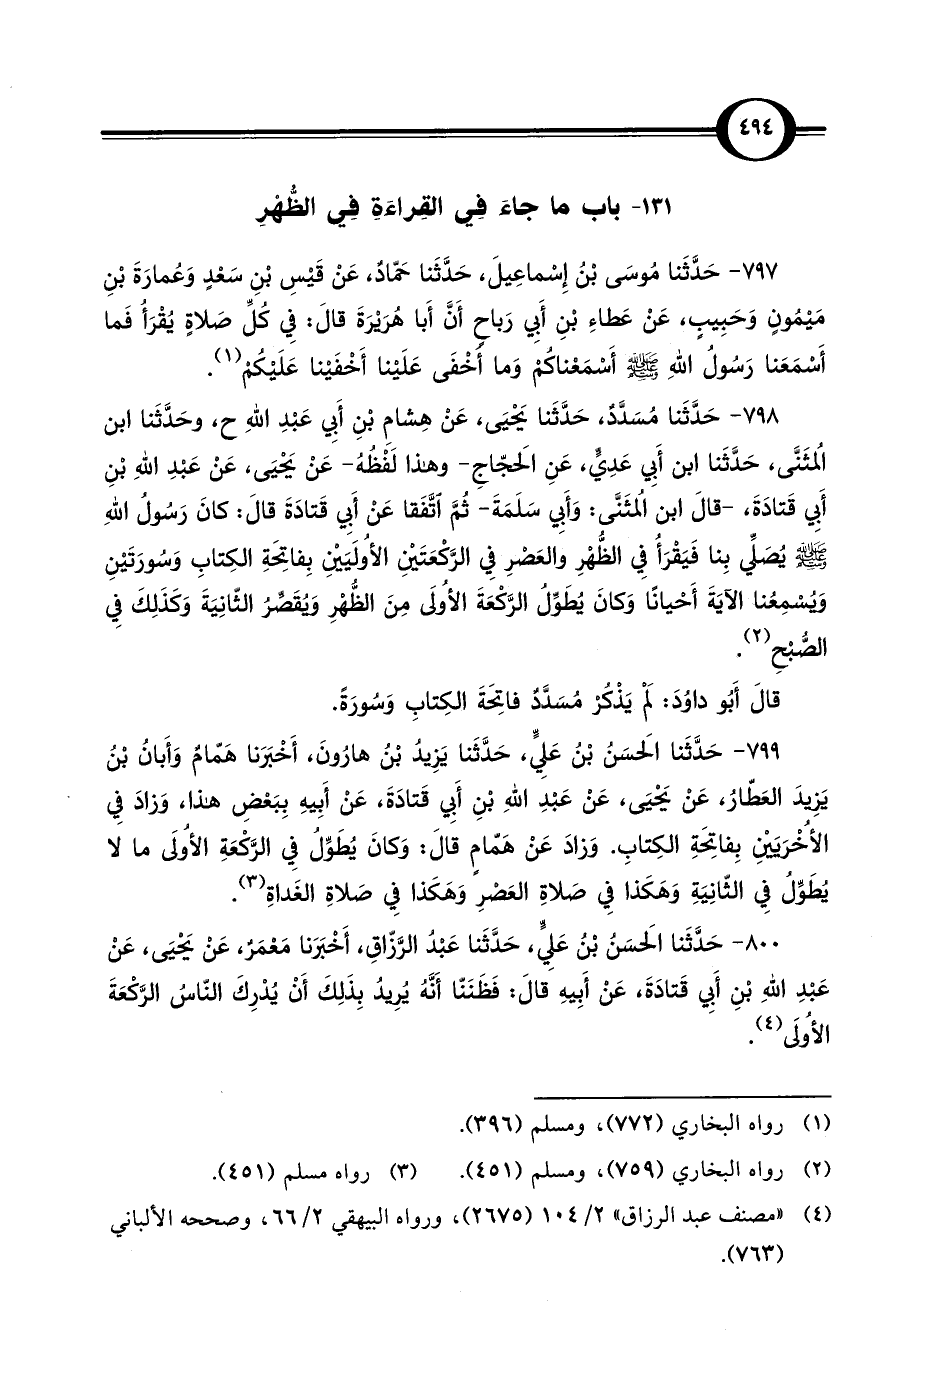 ٤٩٤
١٣١- باب ما جاءَ فِي القِراءَةِ فِي الظُّهْرِ
٧٩٧- حَدَّثَنا مُوسَى بْنُ إِسْماعِيلَ، حَدَّثَنا حَمّادٌ، عَنْ قَيْسِ بْنِ سَعْدٍ وَعُمارَةَ بْنِ
مَيْمُونٍ وَحَبِيبٍ، عَنْ عَطاءِ بْنِ أَبِي رَباحٍ أَنَّ أَبا هُرَيْرَةَ قالَ: فِي كُلِّ صَلاةٍ يُقْرَأُ فَما
أَسْمَعَنا رَسُولُ اللهِ ﷺ أَسْمَعْناكُمْ وَما أَخْفَى عَلَيْنا أَخْفَيْنا عَلَيْكُمْ(١).
٧٩٨- حَدَّثَنا مُسَدَّدٌ، حَدَّثَنا يَحْيَى، عَنْ هِشامِ بْنِ أَبِي عَبْدِ اللهِ ح، وحَدَّثَنا ابن
المُثَنَّى، حَدَّثَنا ابن أَبِي عَدِيٍّ، عَنِ الحَجّاجِ- وهذا لَفْظُهُ- عَنْ يَحْيَى، عَنْ عَبْدِ اللهِ بْنِ
أَبِي قَتادَةَ، -قالَ ابن المُثَنَّى: وَأَبِي سَلَمَةَ- ثُمَّ ٱتَّفَقا عَنْ أَبِي قَتادَةَ قالَ: كانَ رَسُولُ اللهِ
ﷺ يُصَلِّي بِنا فَيَقْرَأُ فِي الظُّهْرِ والعَصْرِ فِي الرَّكْعَتَيْنِ الأُولَيَيْنِ بِفاتِحَةِ الكِتابِ وَسُورَتَيْنِ
وَيُسْمِعُنا الآيَةَ أَحْيانًا وَكانَ يُطَوِّلُ الرَّكْعَةَ الأُولَى مِنَ الظُّهْرِ وَيُقَصِّرُ الثّانِيَةَ وَكَذَلِكَ فِي
الصُّبْحِ(٢).
قالَ أَبُو داوُدَ: لَمْ يَذْكُرْ مُسَدَّدٌ فاتِحَةَ الكِتابِ وَسُورَةً.
٧٩٩- حَدَّثَنا الحَسَنُ بْنُ عَلِيٍّ، حَدَّثَنا يَزِيدُ بْنُ هارُونَ، أَخْبَرَنا هَمّامٌ وَأَبانُ بْنُ
يَزِيدَ العَطّارُ، عَنْ يَحْيَى، عَنْ عَبْدِ اللهِ بْنِ أَبِي قَتادَةَ، عَنْ أَبِيهِ بِبَعْضِ هذا، وَزادَ فِي
الأُخْرَيَيْنِ بِفاتِحَةِ الكِتابِ. وَزادَ عَنْ هَمّامٍ قالَ: وَكانَ يُطَوِّلُ فِي الرَّكْعَةِ الأُولَى ما لا
يُطَوِّلُ فِي الثّانِيَةِ وَهَكَذا فِي صَلاةِ العَصْرِ وَهَكَذا فِي صَلاةِ الغَداةِ(٣).
٨٠٠- حَدَّثَنا الحَسَنُ بْنُ عَلِيٍّ، حَدَّثَنا عَبْدُ الرَّزّاقِ، أَخْبَرَنا مَعْمَرٌ، عَنْ يَحْيَى، عَنْ
عَبْدِ اللهِ بْنِ أَبِي قَتادَةَ، عَنْ أَبِيهِ قالَ: فَظَنَنّا أَنَّهُ يُرِيدُ بِذَلِكَ أَنْ يُدْرِكَ النّاسُ الرَّكْعَةَ
الأُولَى(٤).
(١) رواه البخاري (٧٧٢)، ومسلم (٣٩٦).
(٢) رواه البخاري (٧٥٩)، ومسلم (٤٥١). (٣) رواه مسلم (٤٥١).
(٤) «مصنف عبد الرزاق» ٢/ ١٠٤ (٢٦٧٥)، ورواه البيهقي ٢/ ٦٦، وصححه الألباني
(٧٦٣).